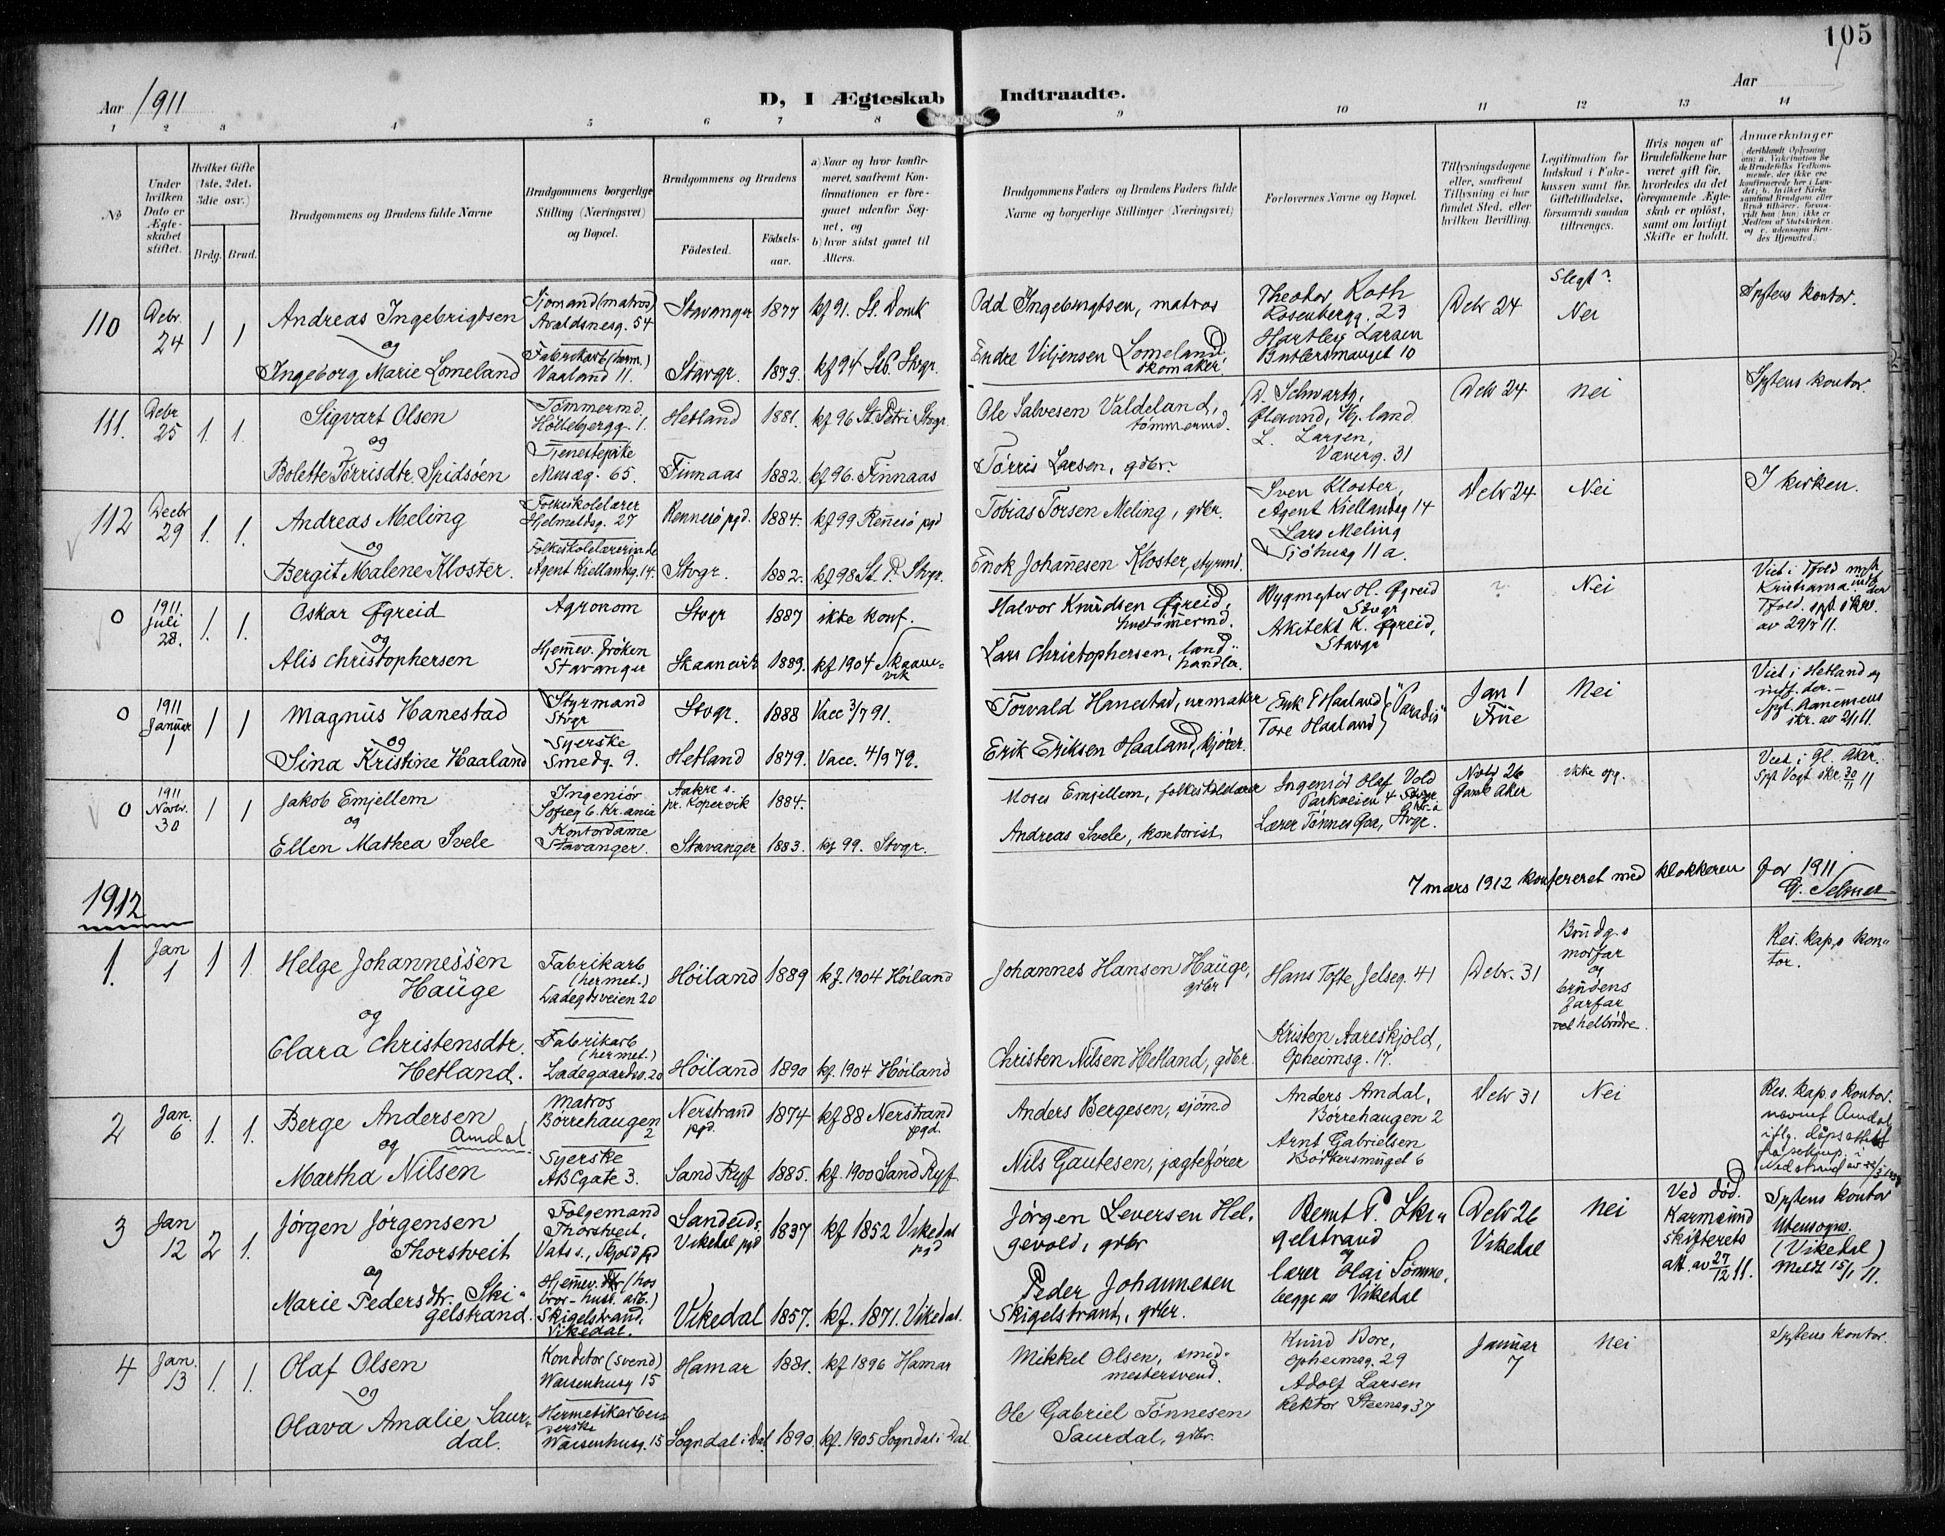 105
Aar 1911
D, I Ægteskab Indtraadte.
Aar
1 2 3 4 5 6 7 8 9 10 11 12 13 14
No
Under hvilken Dato er Ægteskabet stiftet.
Hvilket Gifte (1ste, 2det, 3die osv.)
Brdg. Brud.
Brudgommens og Brudens fulde Navne
Brudgommens borgerlige Stilling (Næringsvei) og Bopæl.
Brudgommens og Brudens
Fødested. Fødselsaar.
a) Naar og hvor konfirmeret, saafremt Konfirmationen er foregaaet udenfor Sognet, og
b) hvor sidst gaaet til Alters.
Brudgommens Faders og Brudens Faders fulde Navne og borgerlige Stillinger (Næringsvei)
Forlovernes Navne og Bopæl.
Tillysningsdagene eller, saafremt Tillysning ei har fundet Sted, efter hvilken Bevilling.
Legitimation for Indskud i Enkekassen samt for Giftetilladelse, forsaavidt saadan tiltrænges.
Hvis nogen af Brudefolkene har været gift før, hvorledes da det foregaaende Ægteskab er opløst, samt om lovligt Skifte er holdt.
Anmærkninger
110 Debr. 24 1 1 Andreas Ingebrigtsen
Sjømand (matros) Avaldsnesg. 54
Stavanger 1877 kf 91. St. Domk
Odd Ingebrigtsen, matros
Theodor Roth
Rosenbergg. 23
Debr 24
Slegt?
Nei
Spstens kontor.
og
Ingeborg Marie Lomeland
Fabrikarb (herm.)
Vaaland 11.
Stavgr. 1879. kf 94 Stvgr.
Endre Viljensen Lomeland, skomaker.
Hartley Larsen
10
111. Debr 25 1. 1. Sigvart Olsen
Tømmermd.
1.
Hetland 1881. kf 96 St. Petri Stvgr.
Ole Salvesen Valdeland, tømmermd.
D. Schwartz,
Debr 24
Nei
Spstens kontor.
og
Bolette Tørrisdtr. Spidsøen
Tjenestepike
Musæg. 65.
Finnaas 1882. kf 96. Finnaas
Tørris Larsen, gdbr.
L. Larsen,
Væverg. 31
112 Decbr 29 1. 1. Andreas Meling
Folkeskolelærer
Helmeldsg. 27
Rennesø pgd. 1884. kf 99 Renesø pgd
Tobias Torsen Meling, gdbr.
Sven Kloster,
Agent Kiellandsg 14
Debr 24
Nei
I kirken.
og
Bergit Malene Kloster.
Folkeskolelærerinde
Agent Kiellandsg. 14.
Stvgr. 1882. kf 98 St. P. Stvgr.
Enok Johanesen Kloster, styrmd.
Lars Meling
Sjöhusg 11 a.
0 1911 Juli 28. 1. 1. Oskar Øgreid
Agronom
Stvgr 1887 ikke konf.
Halvor Knudsen Øgreid, hustømermd.
Bygmester H. Øgreid
Stvgr
?
Nei
av 29/7 11.
og
Alis Christophersen
Hjemmev. frøken
Stavanger
Skaanevik 1889. kf 1904 Skaanevik
Lars Christophersen, landhandler.
Arkitekt K. Øgreid,
Stavgr
0 1911 Januar 1 1 1 Magnus Hanestad
Styrmand
Stvgr
Stvgr. 1888 Vacc 3/7 91.
Torvald Hanestad, urmaker
Erik T Haaland
Tore Haaland "Paradis"
Jan 1
Frue
Nei
Viet i Hetland og
og
Sina Kristine Haaland
Syerske
Smedg 9.
Hetland 1879. Vacc. 4/9 79.
Erik Eriksen Haaland, kjører.
0 1911 Novbr. 30 1 1 Jakob Emjellem
Ingeniør
Sofieg 6. Kr.ania
pr. Kopervik 1884.
Moses Emjellem, folkeskolelærer
Ingeniør Olaf Vold
Parkveien 4
Novbr 26
Gamle Aker
ikke opg.
Viet i Gl. Aker.
og
Ellen Mathea Svele
Kontordame
Stavanger.
Stavanger 1883. kf 99. Stvgr.
Andreas Svele, kontorist
Lærer Tønnes Stvgr.
7 mars 1912 konfereret med klokkeren for 1911
G. Selmer
1912
1. Jan 1 1 1. Helge Johannessen Hauge
Fabrikarb (hermet.)
Ladegdsveien 20
Høiland 1889 kf. 1904 Høiland
Johannes Hansen Hauge, gdbr
Hans Tofte, Jelseg. 41
Debr. 31
Brudg.s morfar og brudens farfar helbrødre.
Res. kap.s kontor.
og
Clara Christensdtr. Hetland.
Fabrikarb (hermet.)
Ladegaardsv. 20
Høiland 1890 kf. 1904 Høiland
Christen Nilsen Hetland, gdbr.
Kristen Aareskjold,
Opheimsg. 17.
2 Jan. 6 1. 1. Berge Andersen Amdal
Matros
Børrehaugen 2
Nerstrand pgd. 1874 kf 88 Nerstrand pgd.
Anders Bergesen, sjømd
Anders Amdal,
Børrehaugen 2
Debr 31
Nei
Res. kap.s kontor.
og
Martha Nilsen
Syerske
ABCgate 3.
Sand Ryf 1885. kf. 1900 Sand Ryf.
Nils Gautesen, jægtefører
Arnt Gabrielsen
Bødkersmuget 6
3 Jan 12 2 1. Jørgen Jørgensen Thorstveit
Følgemand
Thorstveit,
Vats s., Skjold pgd
Sandeid s. Vikedal pgd 1837 kf 1852 Vikedal pgd
Jørgen Leversen Helgevold, gdbr
Bernt P. Skigelstrand
Debr 26
Vikedal
Nei
Ved død.
Karmsund skifterets
att. av 27/12 11.
Spstens kontor
Utensogns.
(Vikedal)
Meldt 15/1 11.
og
Marie Pedersdtr. Skigelstrand.
Skigelstrand, Vikedal.
Vikedal 1857. kf. 1871. Vikedal.
Peder Johannesen
Skigelstrand, gdbr.
og lærer Olai Sømme,
begge av Vikedal
4 Jan. 13 1. 1. Olaf Olsen
Konditor (svend)
Waisenhusg 15
Hamar 1881. kf 1896 Hamar
Mikkel Olsen, smedmestersvend.
Knud Bore,
Opheimsg. 29
Januar 7
Nei
Spstens kontor.
og
Olava Amalie Saurdal.
Hermetikarbeiderske
Waisenhusg. 15
Sogndal i Dal 1890. kf. 1905 Sogndal i Dal
Ole Gabriel Tønnesen Saurdal, gdbr.
Adolf Larsen
Rektor Steensg 37